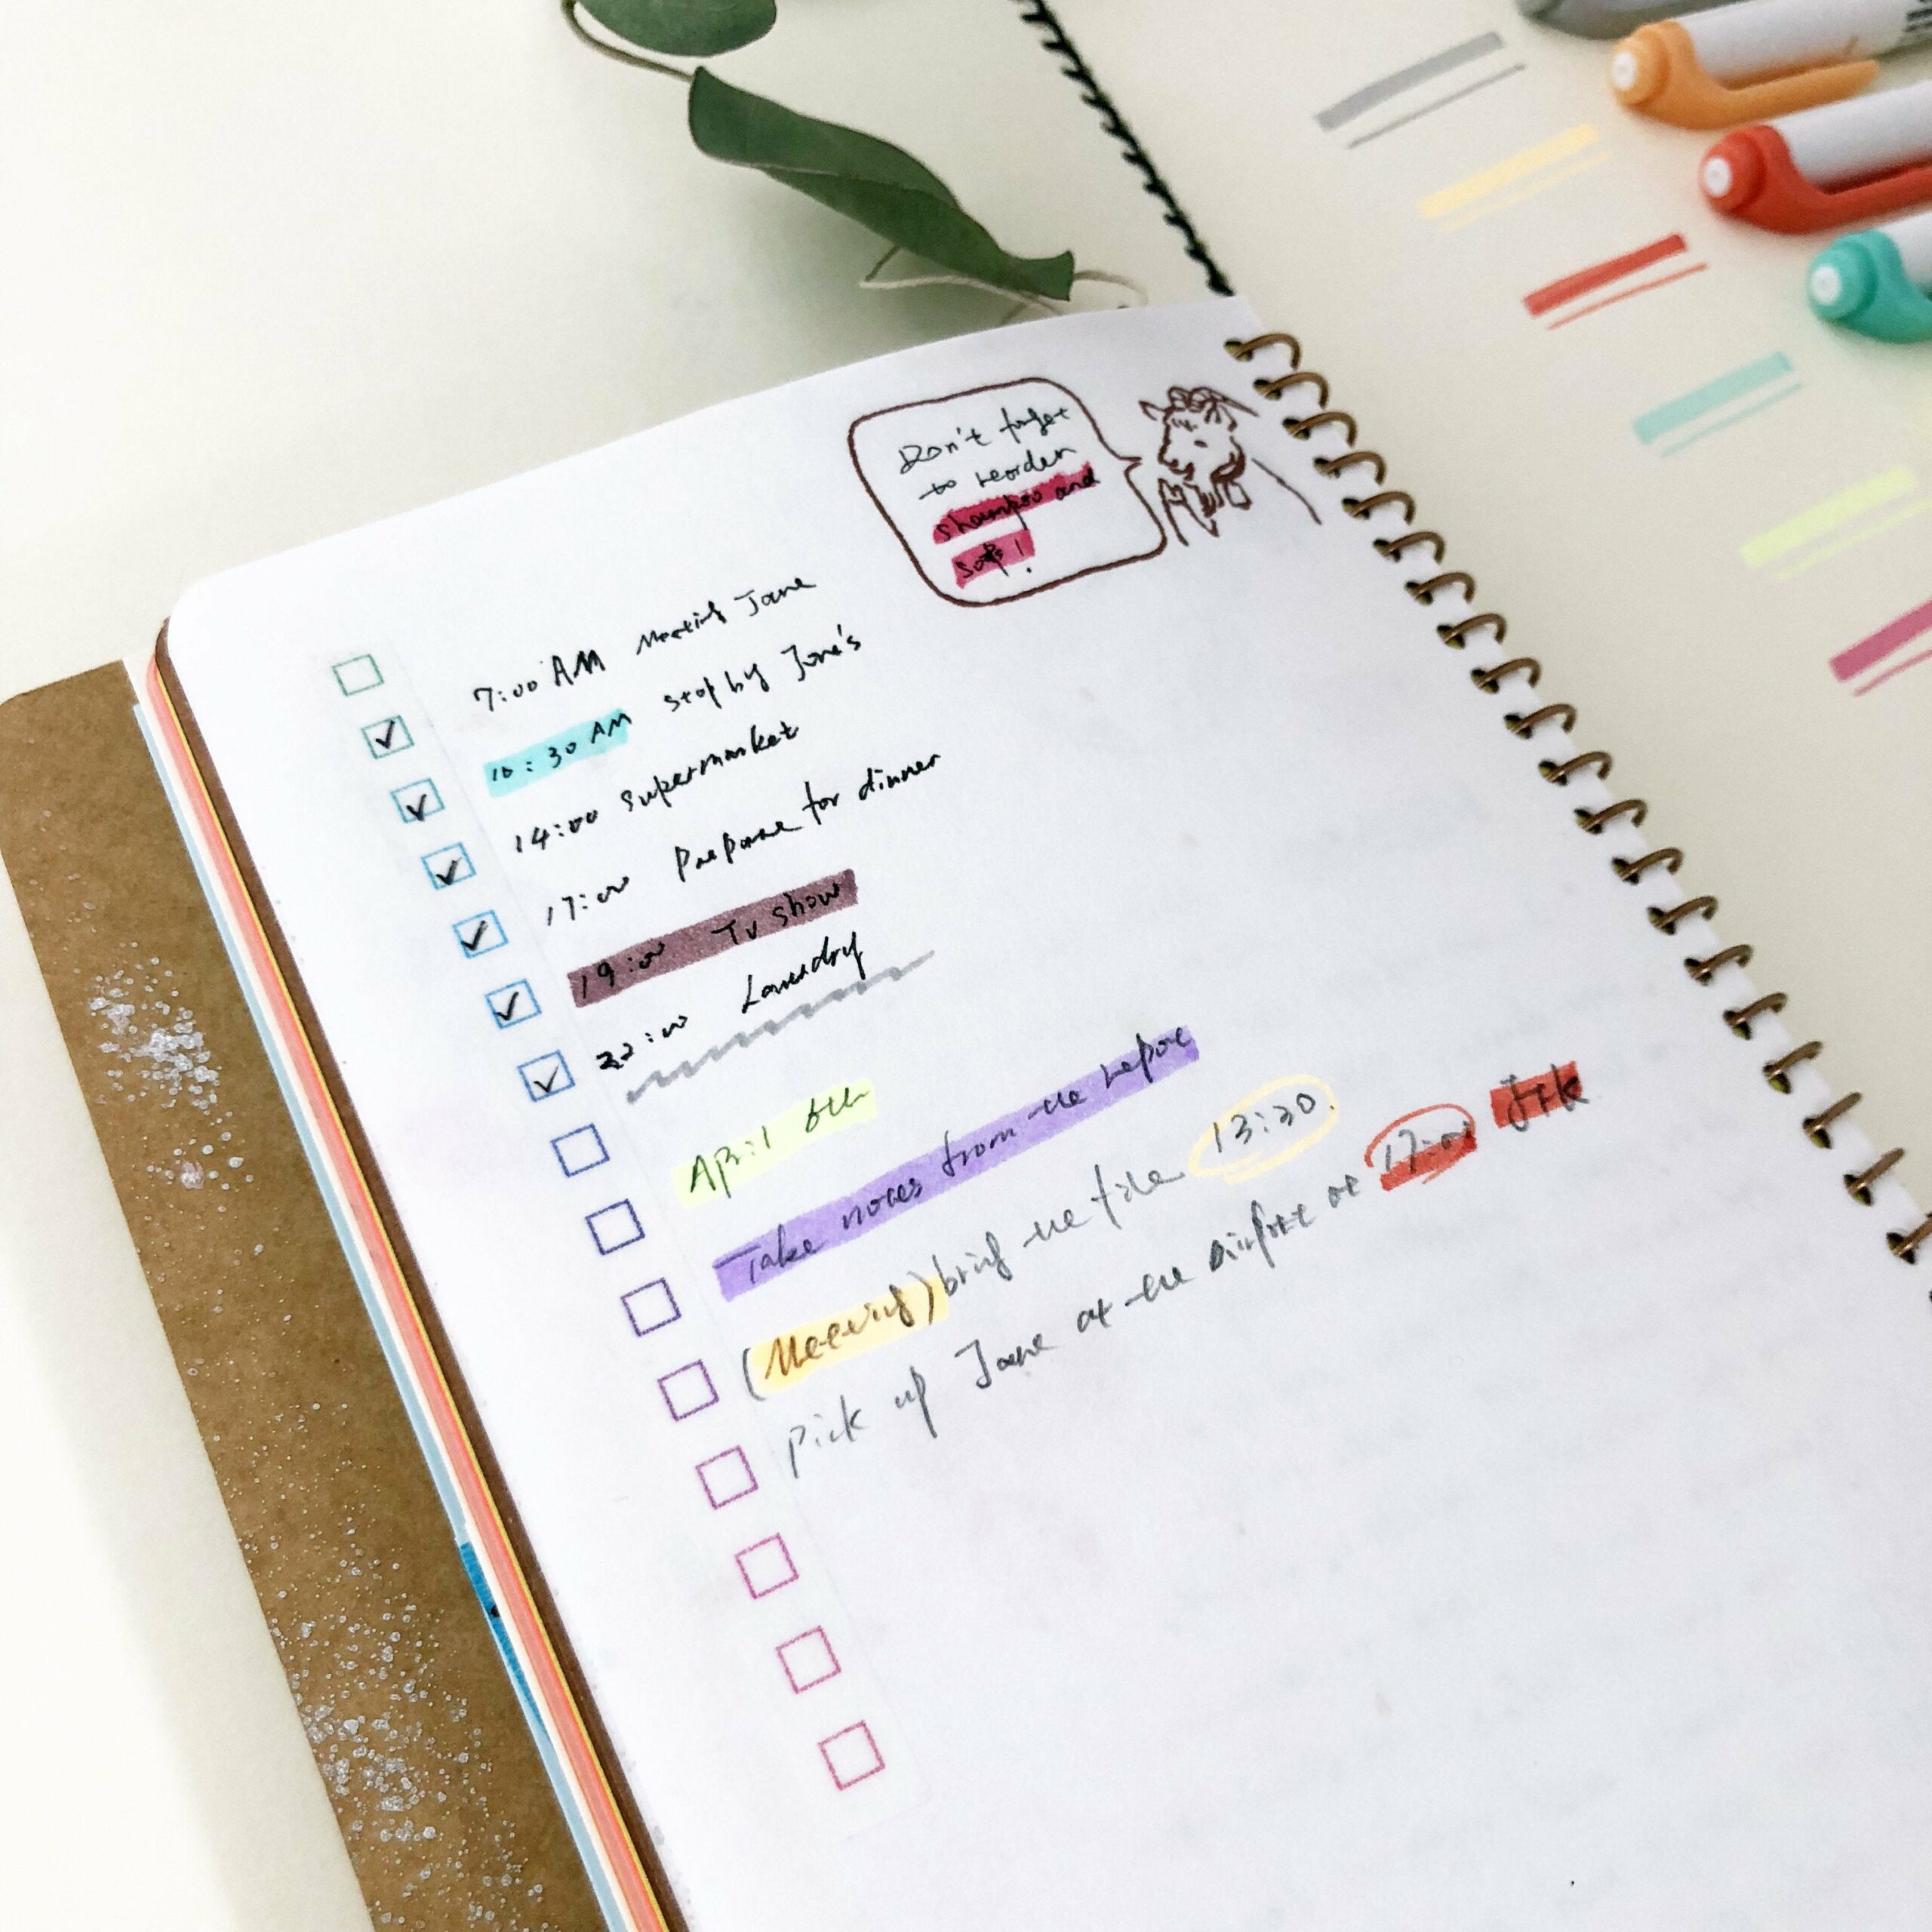 Don't forget
to reorder
shampoo and
soap!
7:00 AM Meeting Jane
10:30 AM stop by Jane's
14:00 supermarket
17:00 Prepare for dinner
19:00 TV show
22:00 Laundry
April 6th
Take notes from the
(Meeting) bring the file 13:30.
Pick up Jane at the airport at 17:00 JFK